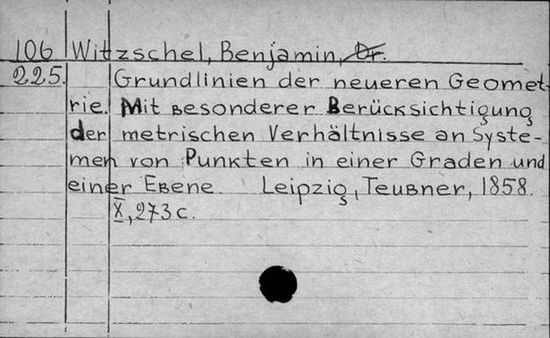 106 Witzschel, Benjamin, Dr.
225. Grundlinien der neueren Geomet-
rie. Mit besonderer Berücksichtigung
der metrischen Verhältnisse an Syste-
men von Punkten in einer Graden und
einer Ebene Leipzig, Teubner, 1858.
X, 273 c.